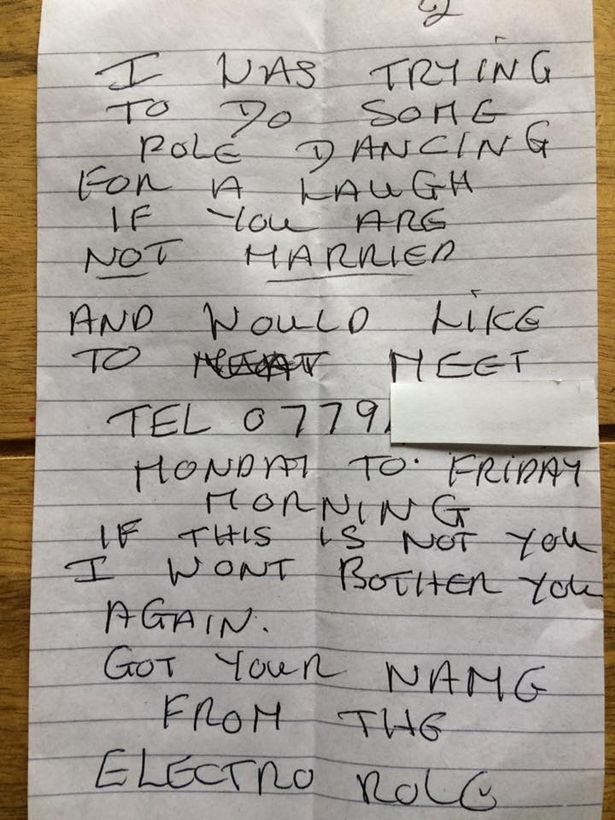 2
I WAS TRYING
TO DO SOME
POLE DANCING
FOR A LAUGH
IF YOU ARE
NOT MARRIED
AND WOULD LIKE
TO MEET
TEL 0779
MONDAY TO FRIDAY
MORNING
IF THIS IS NOT YOU
I WONT BOTHER YOU
AGAIN.
GOT YOUR NAME
FROM THE
ELECTRO ROLE